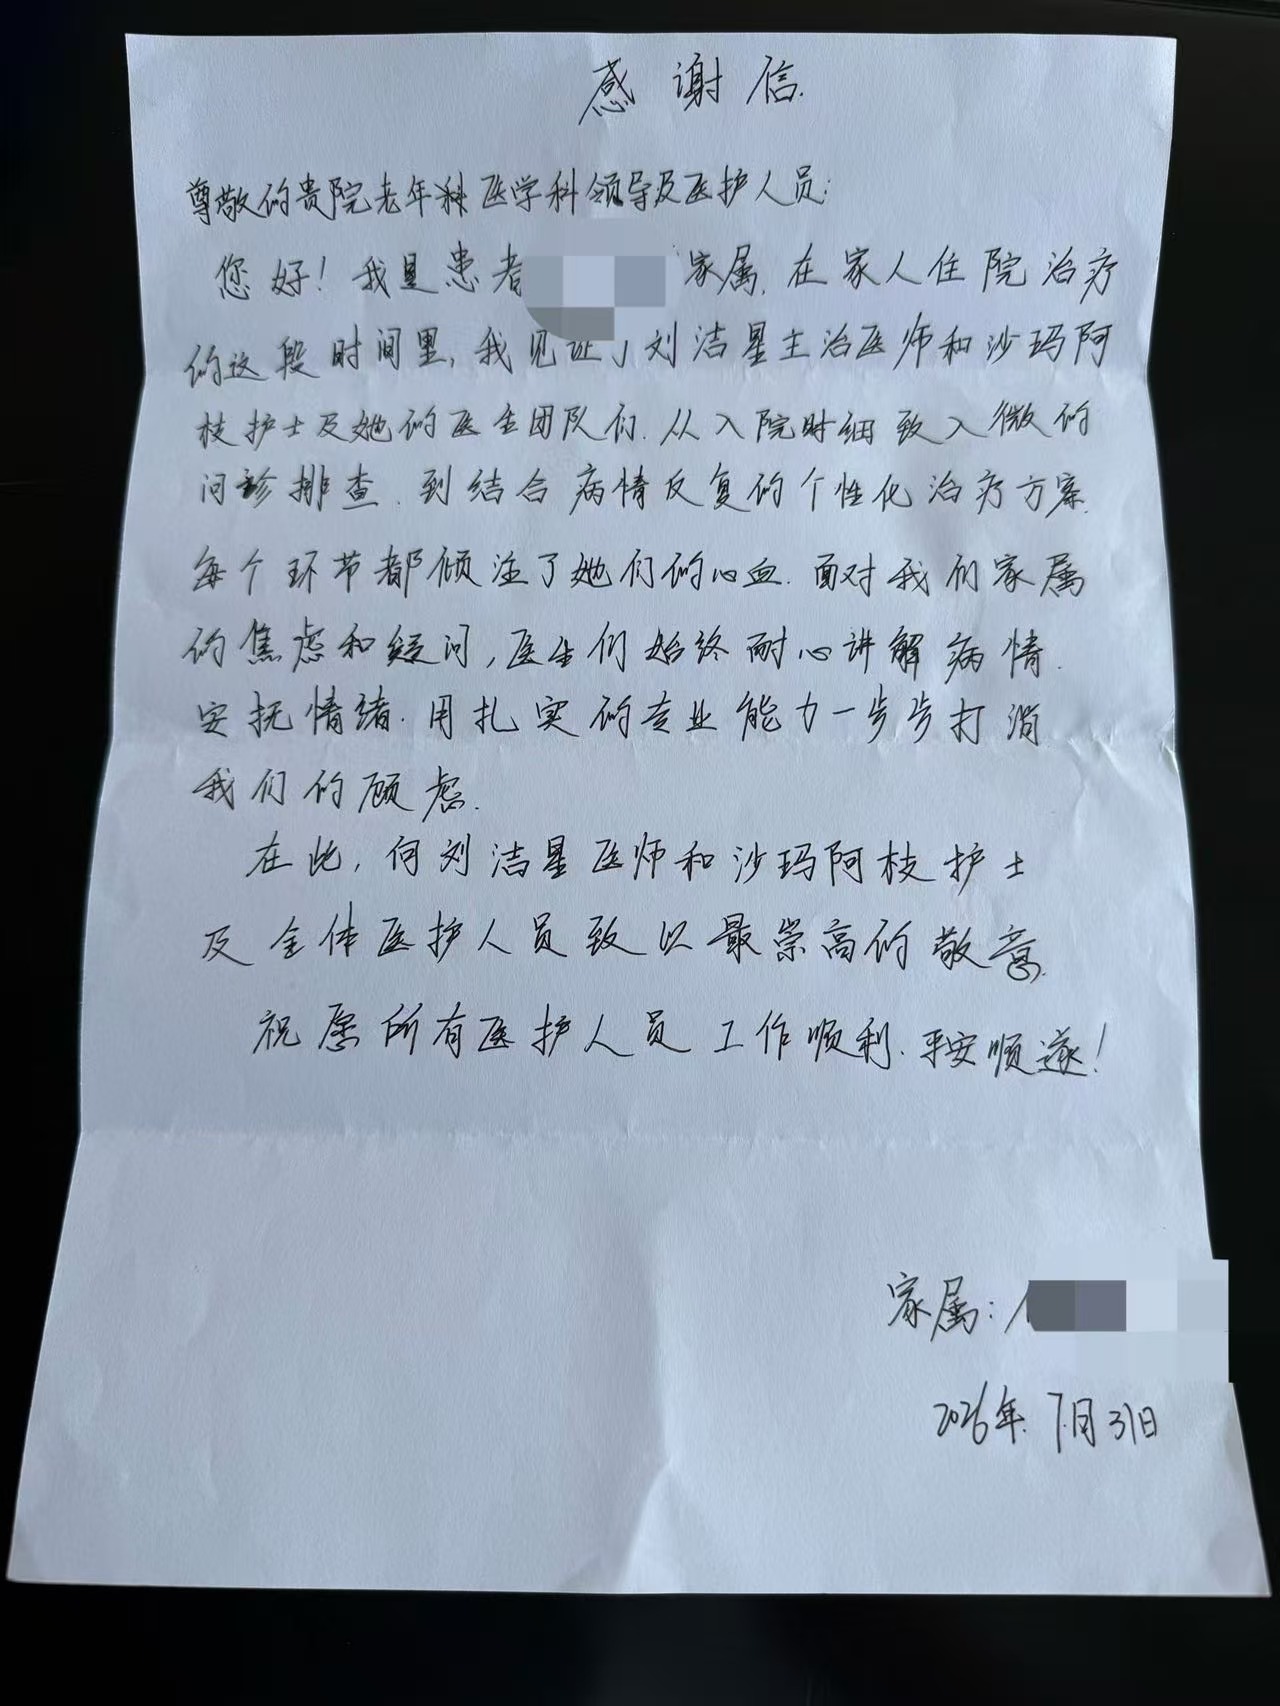 感谢信.
尊敬的贵院老年科医学科领导及医护人员:
您好!我是患者 家属.在家人住院治疗
的这段时间里,我见证了刘洁星主治医师和沙玛阿
枝护士及她的医生团队们.从入院时细致入微的
问诊排查.到结合病情反复的个性化治疗方案.
每个环节都倾注了她们的心血.面对我们家属
的焦虑和疑问,医生们始终耐心讲解病情.
安抚情绪.用扎实的专业能力一步步打消
我们的顾虑.
在此,向刘洁星医师和沙玛阿枝护士
及全体医护人员致以最崇高的敬意.
祝愿所有医护人员工作顺利.平安顺遂!
家属:
2026年.7.月31日